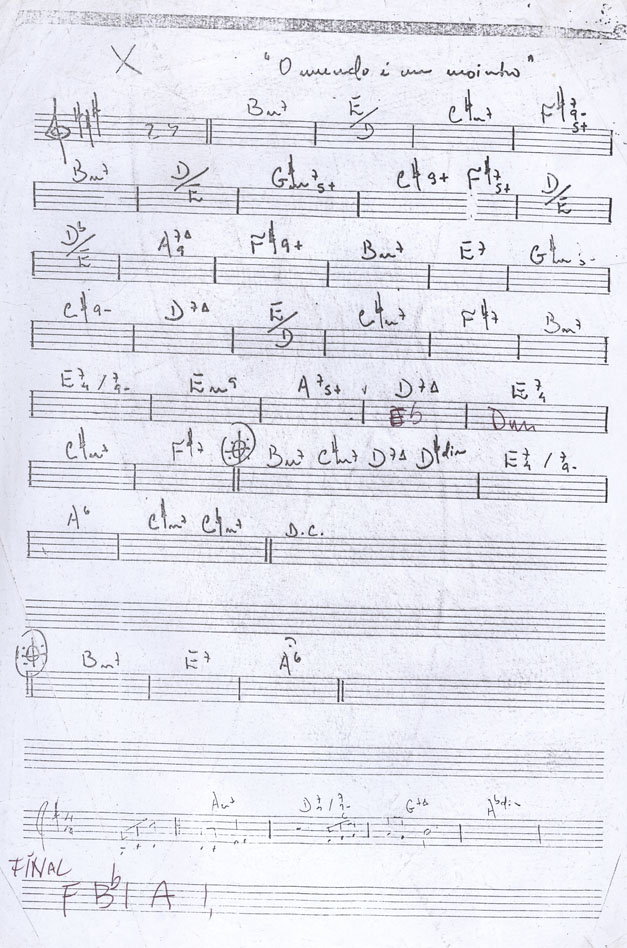 X "O mundo é um moinho"
Bm7 E/D C#m7 F#7 9- 5+
Bm7 D/E G#m7 5+ C#9+ F#7 5+ D/E
Db/E A7Δ 9 F#9+ Bm7 E7 G#m5-
C#9- D7Δ E/D C#m7 F#7 Bm7
E7 4 / 7 9- Em9 A7 5+ D7Δ E7 4
Eb Dm
C#m7 F#7 Bm7 C#m7 D7Δ D#dim E7 4 / 7 9-
A6 C#m7 C#m7 D.C.
Bm7 E7 A6
Am7 G7Δ Abdim
FINAL
F Bb A